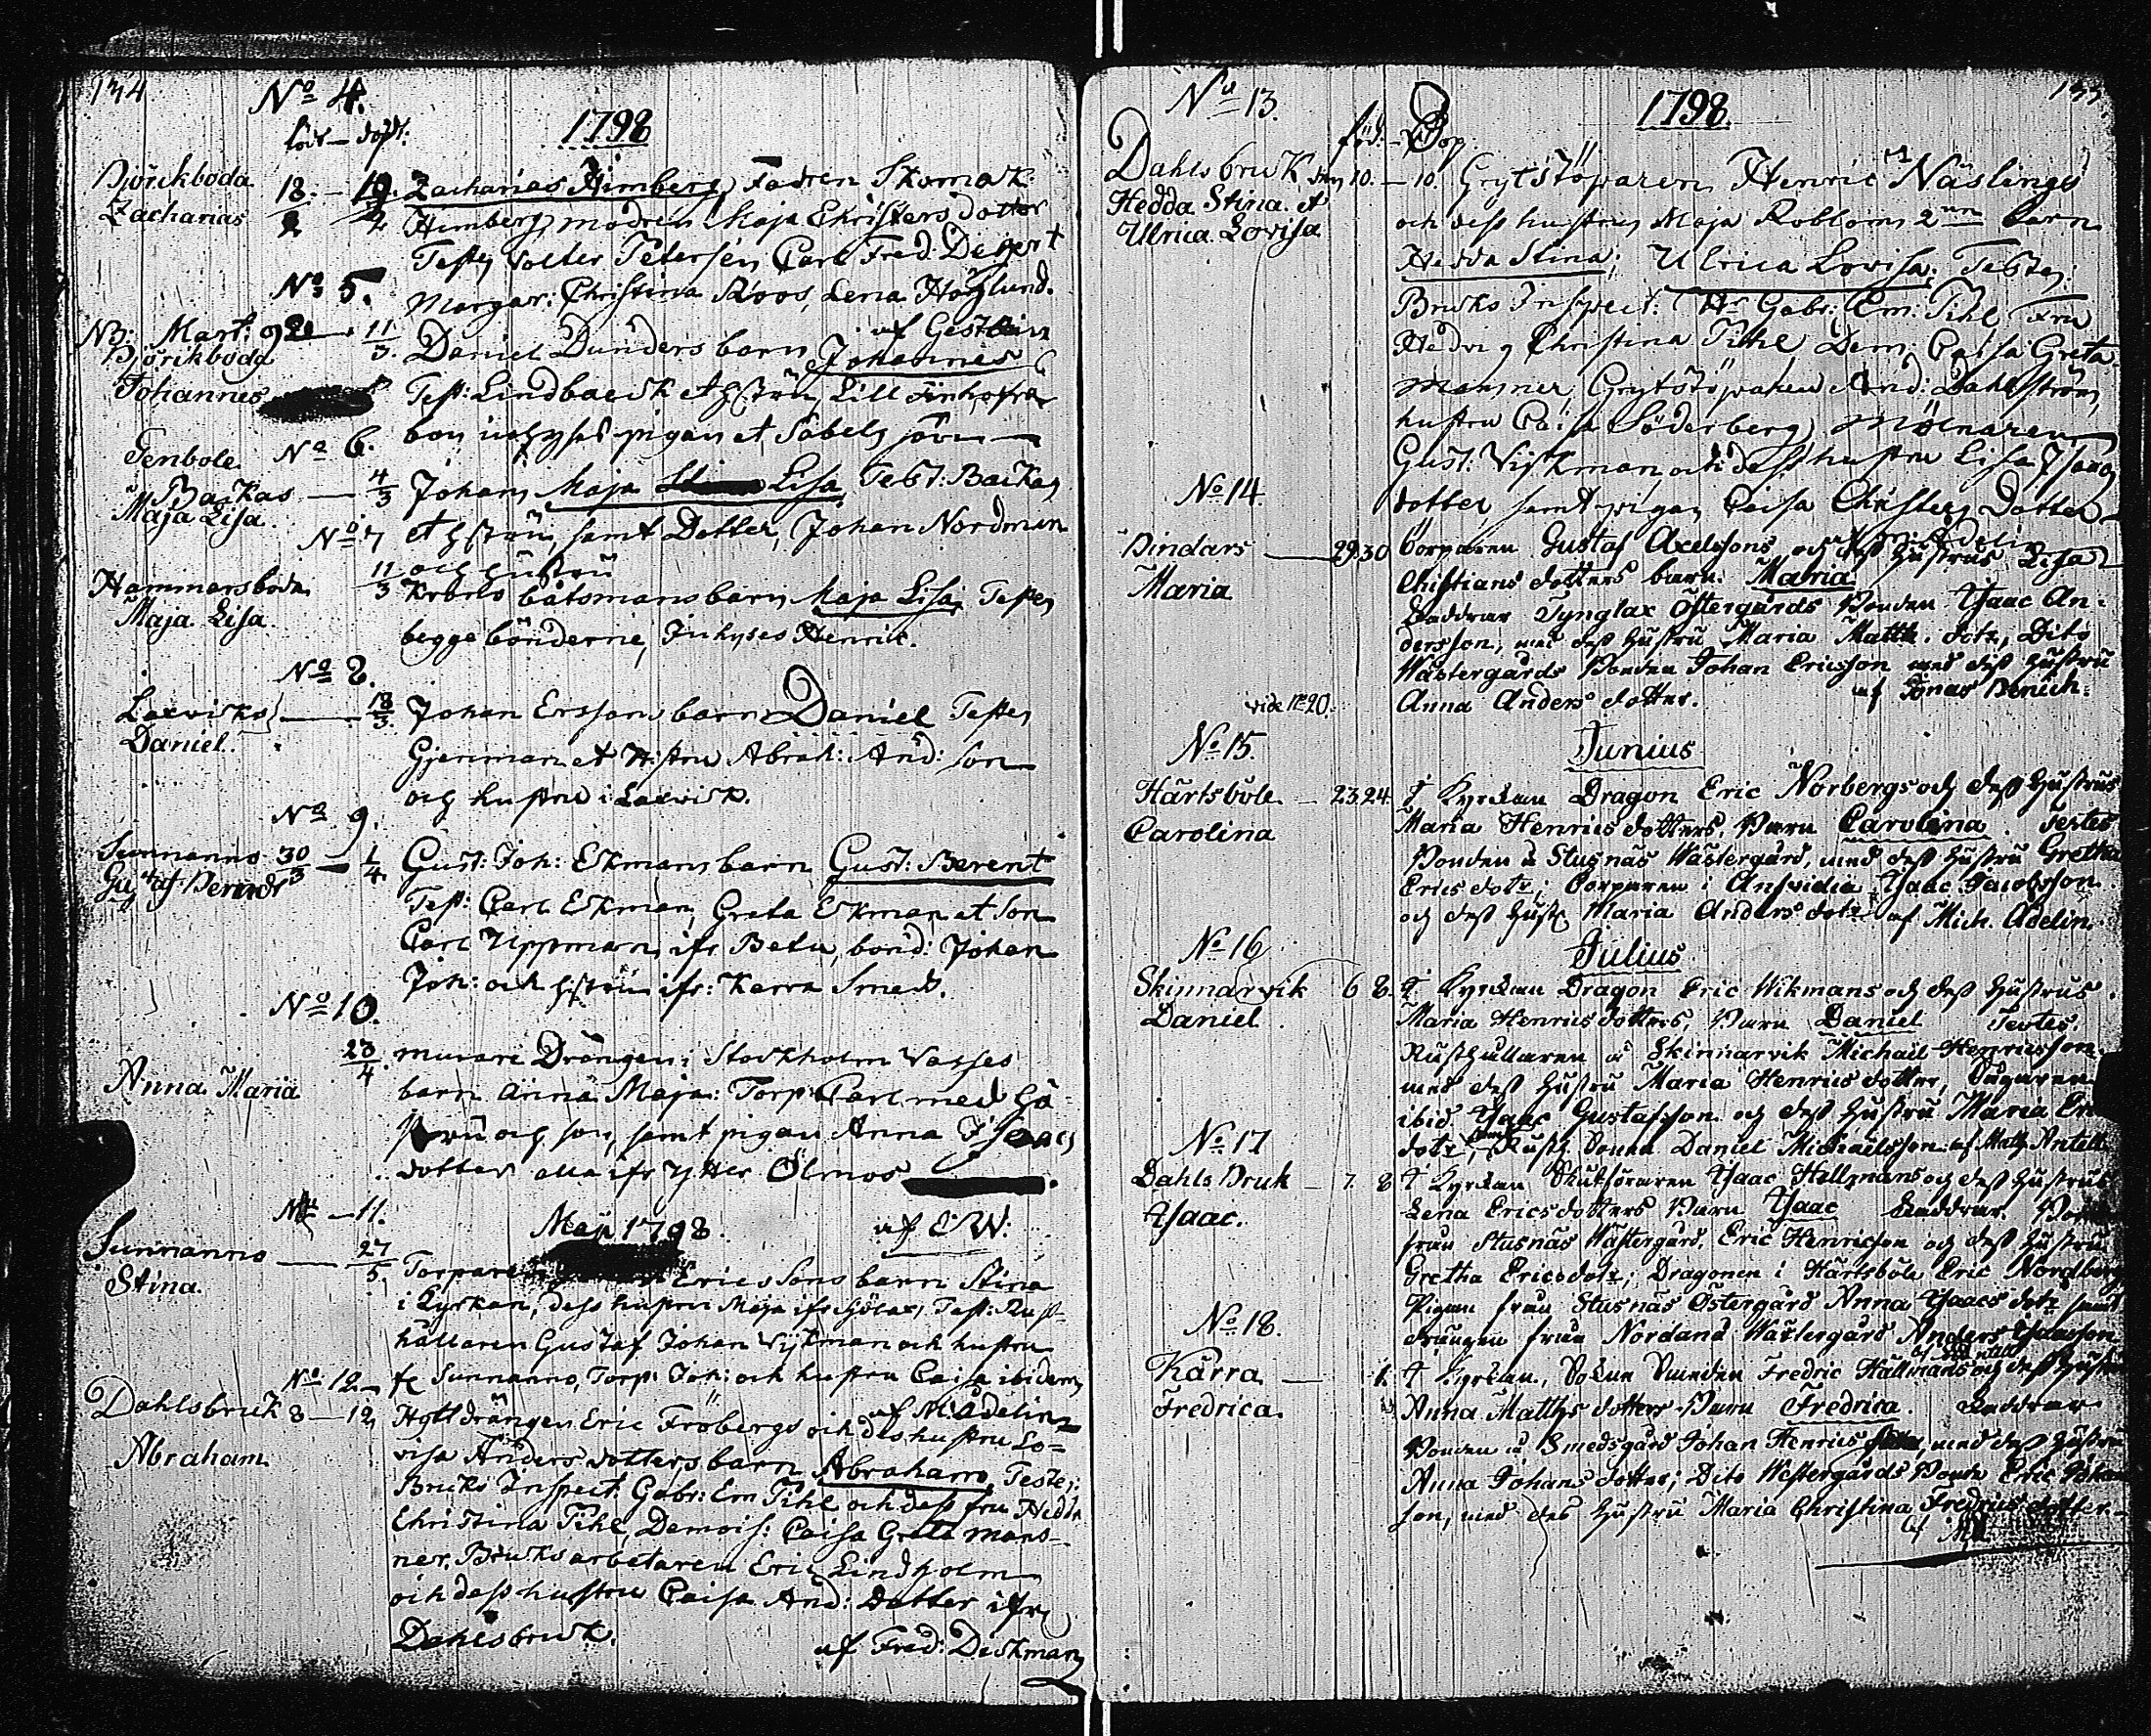 134
No 4.
född — döpt.
1798
Björckboda
Zacharias
18. — 19.
2 2
Zacharias Himberg, Fadren Skomak:
Himberg modren Maja Christersdotter
Testes Volter Petersén Carl Fred. Degert
Margar: Christina Roos, Lena Höglund.
No 5.
NB: Mart:
Björckboda
Johannes
11
3.
Daniel Dunders barn Johannes
Test: Lindbaeck et hustru, Lill Finhofva
No 6.
Tenbole
Backas
Maja Lisa
4
3
Johans Maja Lisa Test: Backas
et hustru, samt Dotter, Johan Nordman
och hustru
No 7
Hammarsboda
Maja Lisa
11
3
Krono båtsmans barn Maja Lisa; Testes
begge bönderne, Inhyses Henric.
No 8.
Laxvicks
Daniel.
18
3.
Johan Erssons barn Daniel Testes
et Hustru Abrah: And: son
och hustru i Laxvick.
No 9.
Sunnanno
Gustaf Berendt
30 — 1
3 4.
Gust: Joh: Ekmans barn Gust: Berent
Test: Carl Ekman, Greta Ekman et son
Carl Uppman, ifr Betu, bond: Johan
Joh: och hustru ifr: Karra Smeds.
No 10.
Anna Maria
23
4.
murare Drängen i Stockholm Vasses
barn Anna Maja: Torp: Carl med hu-
stru och son, samt pigan Anna Isaacs
dotter alla ifr Ytter Ölmos
No — 11.
Maji 1798.
af EW:
Sunnanno
Stina.
27
5.
Torpare Ericssons barn Stina
i Kyrkan, dess hustru Maja ifr Test: Rust-
hållaren Gustaf Johan Wijkman och hustru
fr Sunnanno, Torp: Joh: och hustru Caisa ibidem,
af M Adelin
No 12.
Dahlsbruk 8 — 12
Abraham.
Hytt drängen Eric Fröbergs och des hustru Lo-
visa Anders dotters barn Abraham, Testes:
Bruks Inspect: Gabr: Em Pihl och dess fru Hedv
Christina Pihl, Demois: Caisa Greta Mans-
ner. Bruksarbetaren Eric Lindholm
och dess hustru Caisa And: Dotter ifrn
Dahlsbruk.
af Fred: Deckman
No 13.
1798.
född — Döp
Dahlsbruk den 10. — 10.
Hedda Stina. et
Ulrica Lovisa
Grytstöparen Henric Näslings
och dess hustru Maja Robloms 2ne barn
Hedda Stina; Ulrica Lovisa; Testes:
Bruks Inspect: Hr Gabr: Em. Pihl, Fru
Hedvig Christina Pihl, Dem: Caisa Greta
Mansner, Grytstöparen And: Dahlström,
hustru Caisa Söderberg, Mölnaren
Gust: Vikman, och dess hustru Lisa Isaacs
dotter, samt pigan Caisa Christers Dotter
No 14.
Bindars — 29.30
Maria
Torparen Gustaf Axelssons och dess hustrus Lisa
Christians dotters barn. Maria
Faddrar Tynglax Östergårds Bonden Isaac An-
dersson, med dess hustru Maria Matth. dotr, Dito
Wästergårds Bonden Johan Ericsson med dess hustru
Anna Anders dotter. af Jonas Benich.
vide No 20.
Junius
No 15.
Härtsböle — 23.24
Carolina
I Kyrckan Dragon Eric Norbergs och dess hustrus
Maria Henrics dotters, Barn Carolina. Testes
Bonden å Stusnäs Wästergård, med dess hustru Gretha
Erics dotr; Torparen i Ansvidia Isaac Jacobsson
och dess hustr. Maria Anders dotr af Mich. Adelin.
Julius
No 16
Skinnarvik 6 8.
Daniel
I Kyrckan Dragon Eric Wikmans och dess hustrus
Maria Henrics dotters, Barn Daniel Testes.
Rusthållaren å Skinnarvik Michaël Henricsson
med dess hustru Maria Henrics dotter,
ibid. Isaac Gustafsson och dess hustru Maria Er
dotr, samt Rusth. Sonen Daniel Michaelsson af Math Antell
No 17
Dahls Bruk — 7. 8
Isaac.
I Kyrckan Isaac Hellmans och dess hustrus
Lena Ericsdotters Barn Isaac Faddrar. Bonden
från Stusnäs Wästergård, Eric Henricson och dess hustru
Gretha Ericsdotr; Dragonen i Härtsböle Eric Nordberg
Pigan från Stusnäs Östergård Anna Isaacs dotr samt
drängen från Nordanå Wästergård Anders Isaacsson
af Antell
No 18.
Kärra — 1.
Fredrica.
I Kyrckan, Fredric Hällmans och dess hustrus
Anna Matths dotters Barn Fredrica. Faddrar
Bonden å Smedsgård Johan Henrics, med dess hustru
Anna Johans dotter; Dito Westergårds Bonde Eric Johan
son, med des hustru Maria Christina Fredrics dotter.